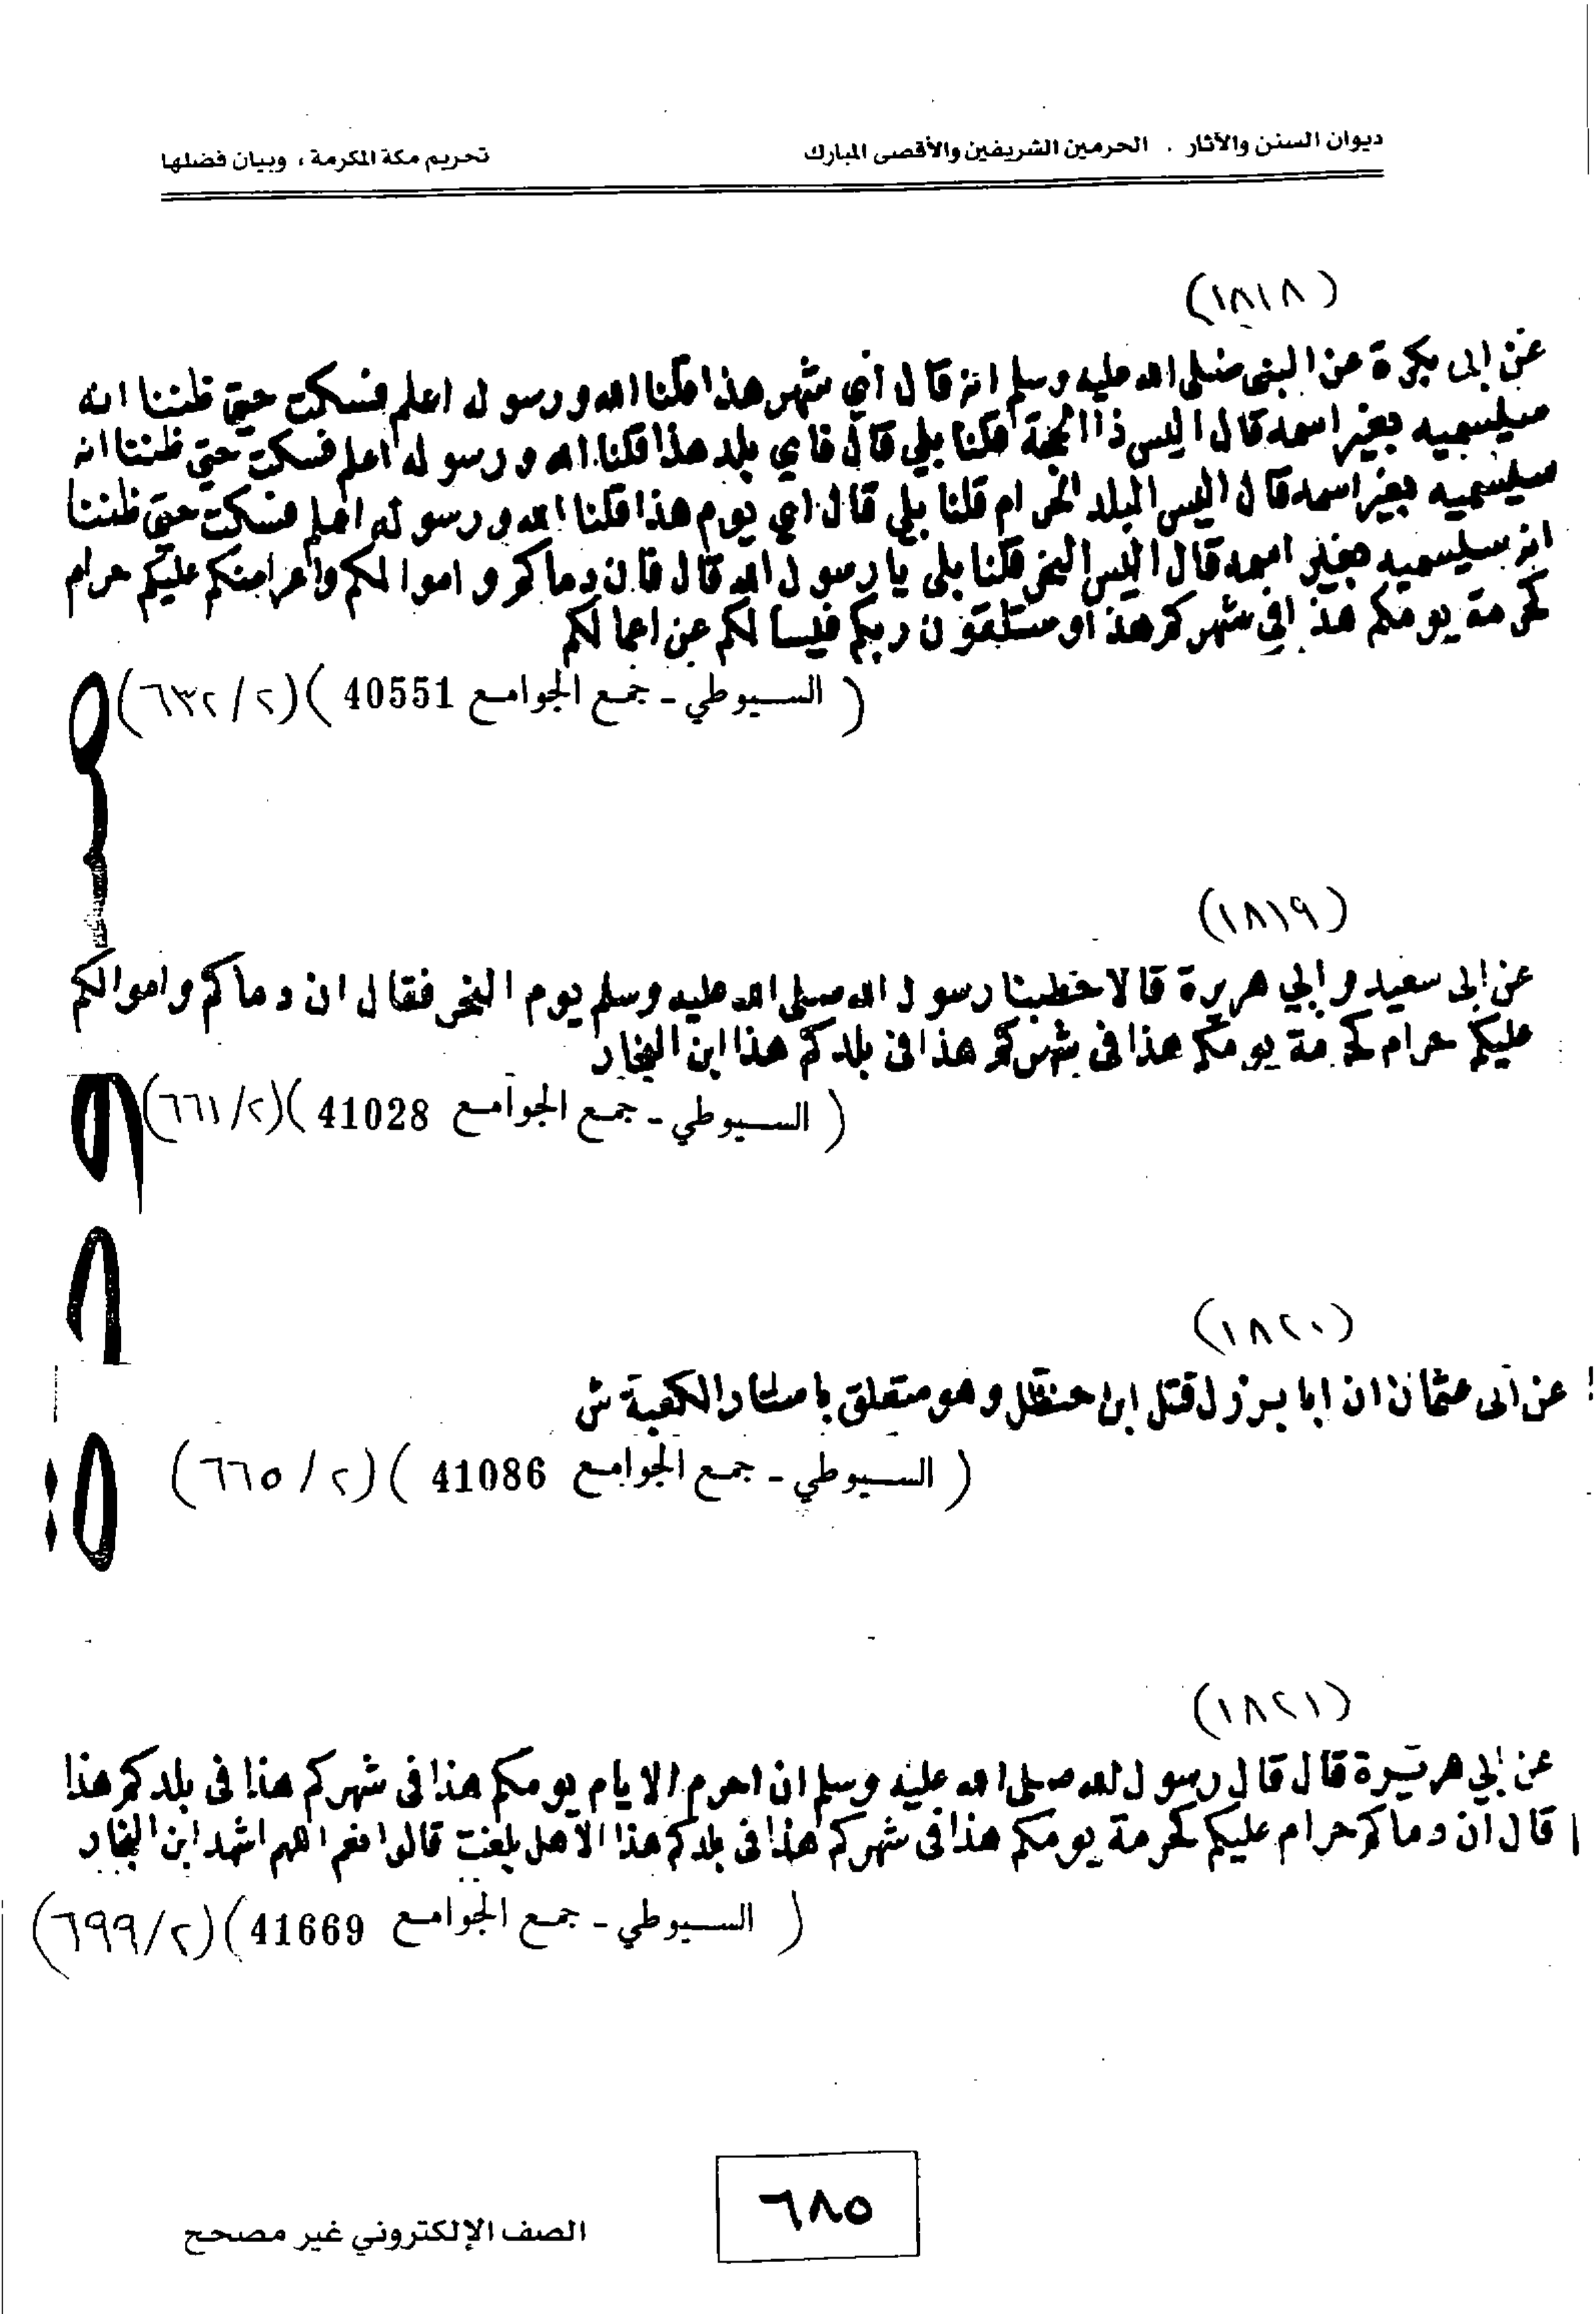 ديوان السنن والآثار . الحرمين الشريفين والأقصى المبارك تحريم مكة المكرمة ، وبيان فضلها
(١٨١٨)
عن ابى بكرة عن النبى صلى الله عليه وسلم انه قال أي شهر هذا قلنا الله ورسوله اعلم فسكت حتى ظننا انه
سيسميه بغير اسمه قال اليس ذا الحجة قلنا بلي قال فاي بلد هذا قلنا الله ورسوله اعلم فسكت حتى ظننا انه
سيسميه بغير اسمه قال اليس البلد الحرام قلنا بلي قال اي يوم هذا قلنا الله ورسوله اعلم فسكت حتى ظننا
انه سيسميه بغير اسمه قال اليس النحر قلنا بلى يا رسول الله قال فان دماكم واموالكم واعراضكم عليكم حرام
كحرمة يومكم هذا في شهركم هذا وستلقون ربكم فيسالكم عن اعمالكم
( السيوطي - جمع الجوامع 40551 )(٢/٦٣٢)
(١٨١٩)
عن ابى سعيد وابي هريرة قالا خطبنا رسول الله صلى الله عليه وسلم يوم النحر فقال ان دماكم واموالكم
عليكم حرام كحرمة يومكم هذا فى شهركم هذا فى بلدكم هذا ابن النجار
( السيوطي - جمع الجوامع 41028 )(٢/٦٦١)
(١٨٢٠)
عن ابى عثمان ان ابا قتل ابن وهو متعلق باستار الكعبة ش
( السيوطي - جمع الجوامع 41086 )(٢/٦٦٥)
(١٨٢١)
عن ابي هريرة قال قال رسول الله صلى الله عليه وسلم ان احرم الايام يومكم هذا فى شهركم هذا فى بلدكم هذا
قال ان دماكم حرام عليكم كحرمة يومكم هذا فى شهركم هذا فى بلدكم هذا الا هل بلغت قالوا نعم اللهم اشهد ابن النجار
( السيوطي - جمع الجوامع 41669 )(٢/٦٩٩)
٦٨٥
الصف الإلكتروني غير مصحح